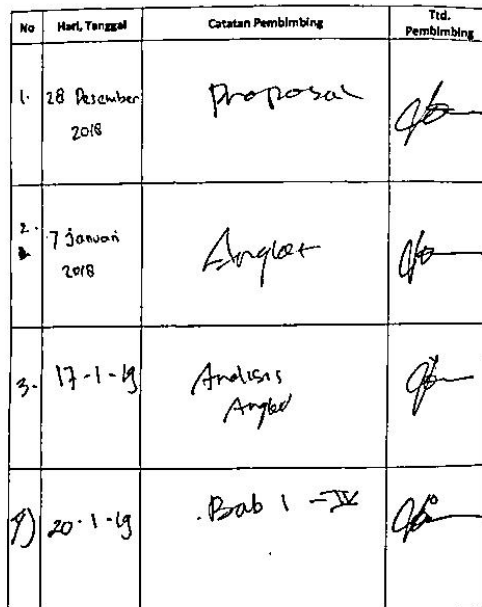 No Hari, Tanggal Catatan Pembimbing Ttd. Pembimbing
1. 28 Desember 2018 Proposal
2. 7 Januari 2018 Angket
3. 17-1-19 Analisis Angket
4) 20-1-19 Bab I - IV